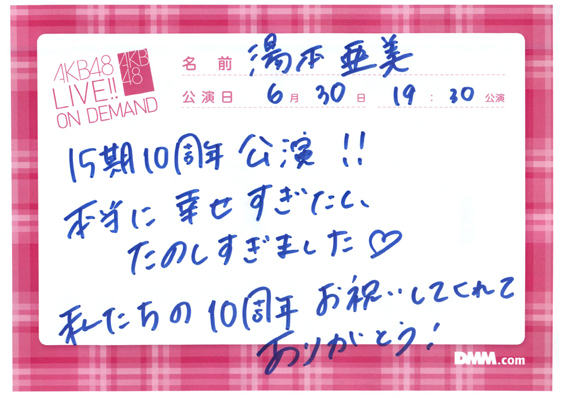 AKB48
LIVE!!
ON DEMAND
AKB
48
名前 湯本亜美
公演日 6月30日 19:30公演
15期10周年 公演!!
本当に幸せすぎたし、
たのしすぎました♡
私たちの10周年お祝いしてくれて
ありがとう!
DMM.com